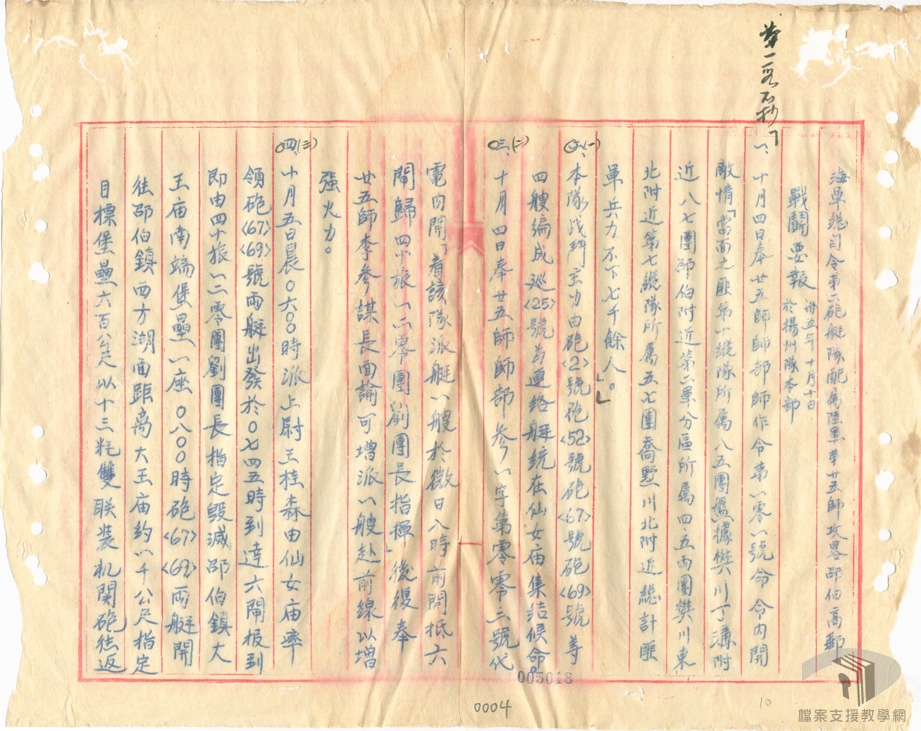 海軍總司令第二砲艇隊配屬陸軍廿五師攻畧邵伯高郵
戰鬪要報 卅五年十月十日
於揚州隊本部
一、十月四日奉廿五師師部師作令第一零一號命令內開
敵情「當面之匪第十縱隊所屬八五團盤據樊川丁溝附
近八七團邵伯附近第二軍分區所屬四五兩團樊川東
北附近第七縱隊所屬五七團喬墅川北附近總計匪
軍兵力不下七千餘人。」
(一)本隊戰鬥主力由砲〈2〉號砲〈52〉號砲〈67〉號砲〈69〉號等
四艘編成巡〈25〉號為連絡艇統在仙女庙集結候命。
(二)十月四日奉廿五師師部參一字第零零二號代
電內開「着該隊派艇一艘於微日八時前開抵六
閘歸四十旅一二零團劉團長指揮」後復奉
廿五師李參謀長面諭可增派一艘赴前線以增
強火力。
(三)十月五日晨〇六〇〇時派上尉王桂森由仙女庙率
領砲〈67〉〈69〉號兩艇出發於〇七四五時到達六閘报到
即由四十旅一二零團劉團長指定毀滅邵伯鎮大
王庙南端堡壘一座〇八〇〇時砲〈67〉〈69〉兩艇開
往邵伯鎮西方湖面距离大王庙約一千公尺指定
目標堡壘六百公尺以十三粍雙联装机関砲往返
005018
0004
10
檔案支援教學網